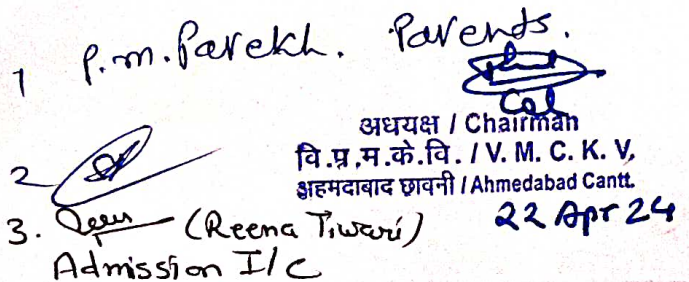 1 P.M. Parekh. Parents.
Col
अधयक्ष / Chairman
वि.प्र.म.के.वि. / V. M. C. K. V,
अहमदाबाद छावनी / Ahmedabad Cantt.
22 Apr 24
2
3. (Reena Tiwari)
Admission I/C